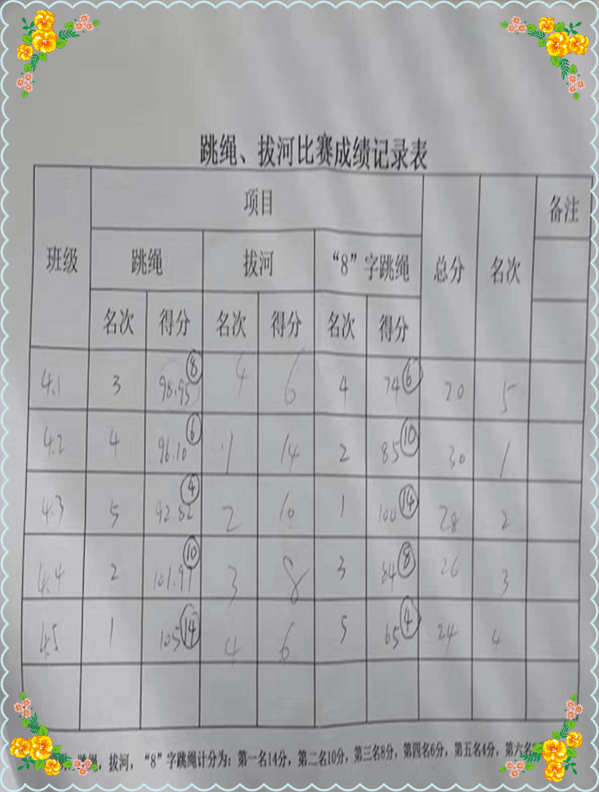 跳绳、拔河比赛成绩记录表
班级 项目 总分 名次 备注
跳绳 拔河 “8”字跳绳
名次 得分 名次 得分 名次 得分
4.1 3 98.95 ⑧ 4 6 4 74 ⑥ 20 5
4.2 4 96.10 ⑥ 1 14 2 85 ⑩ 30 1
4.3 5 92.82 ④ 2 10 1 100 ⑭ 28 2
4.4 2 101.97 ⑩ 3 8 3 84 ⑧ 26 3
4.5 1 105 ⑭ 4 6 5 65 ④ 24 4
跳绳，拔河，“8”字跳绳计分为：第一名14分，第二名10分，第三名8分，第四名6分，第五名4分，第六名